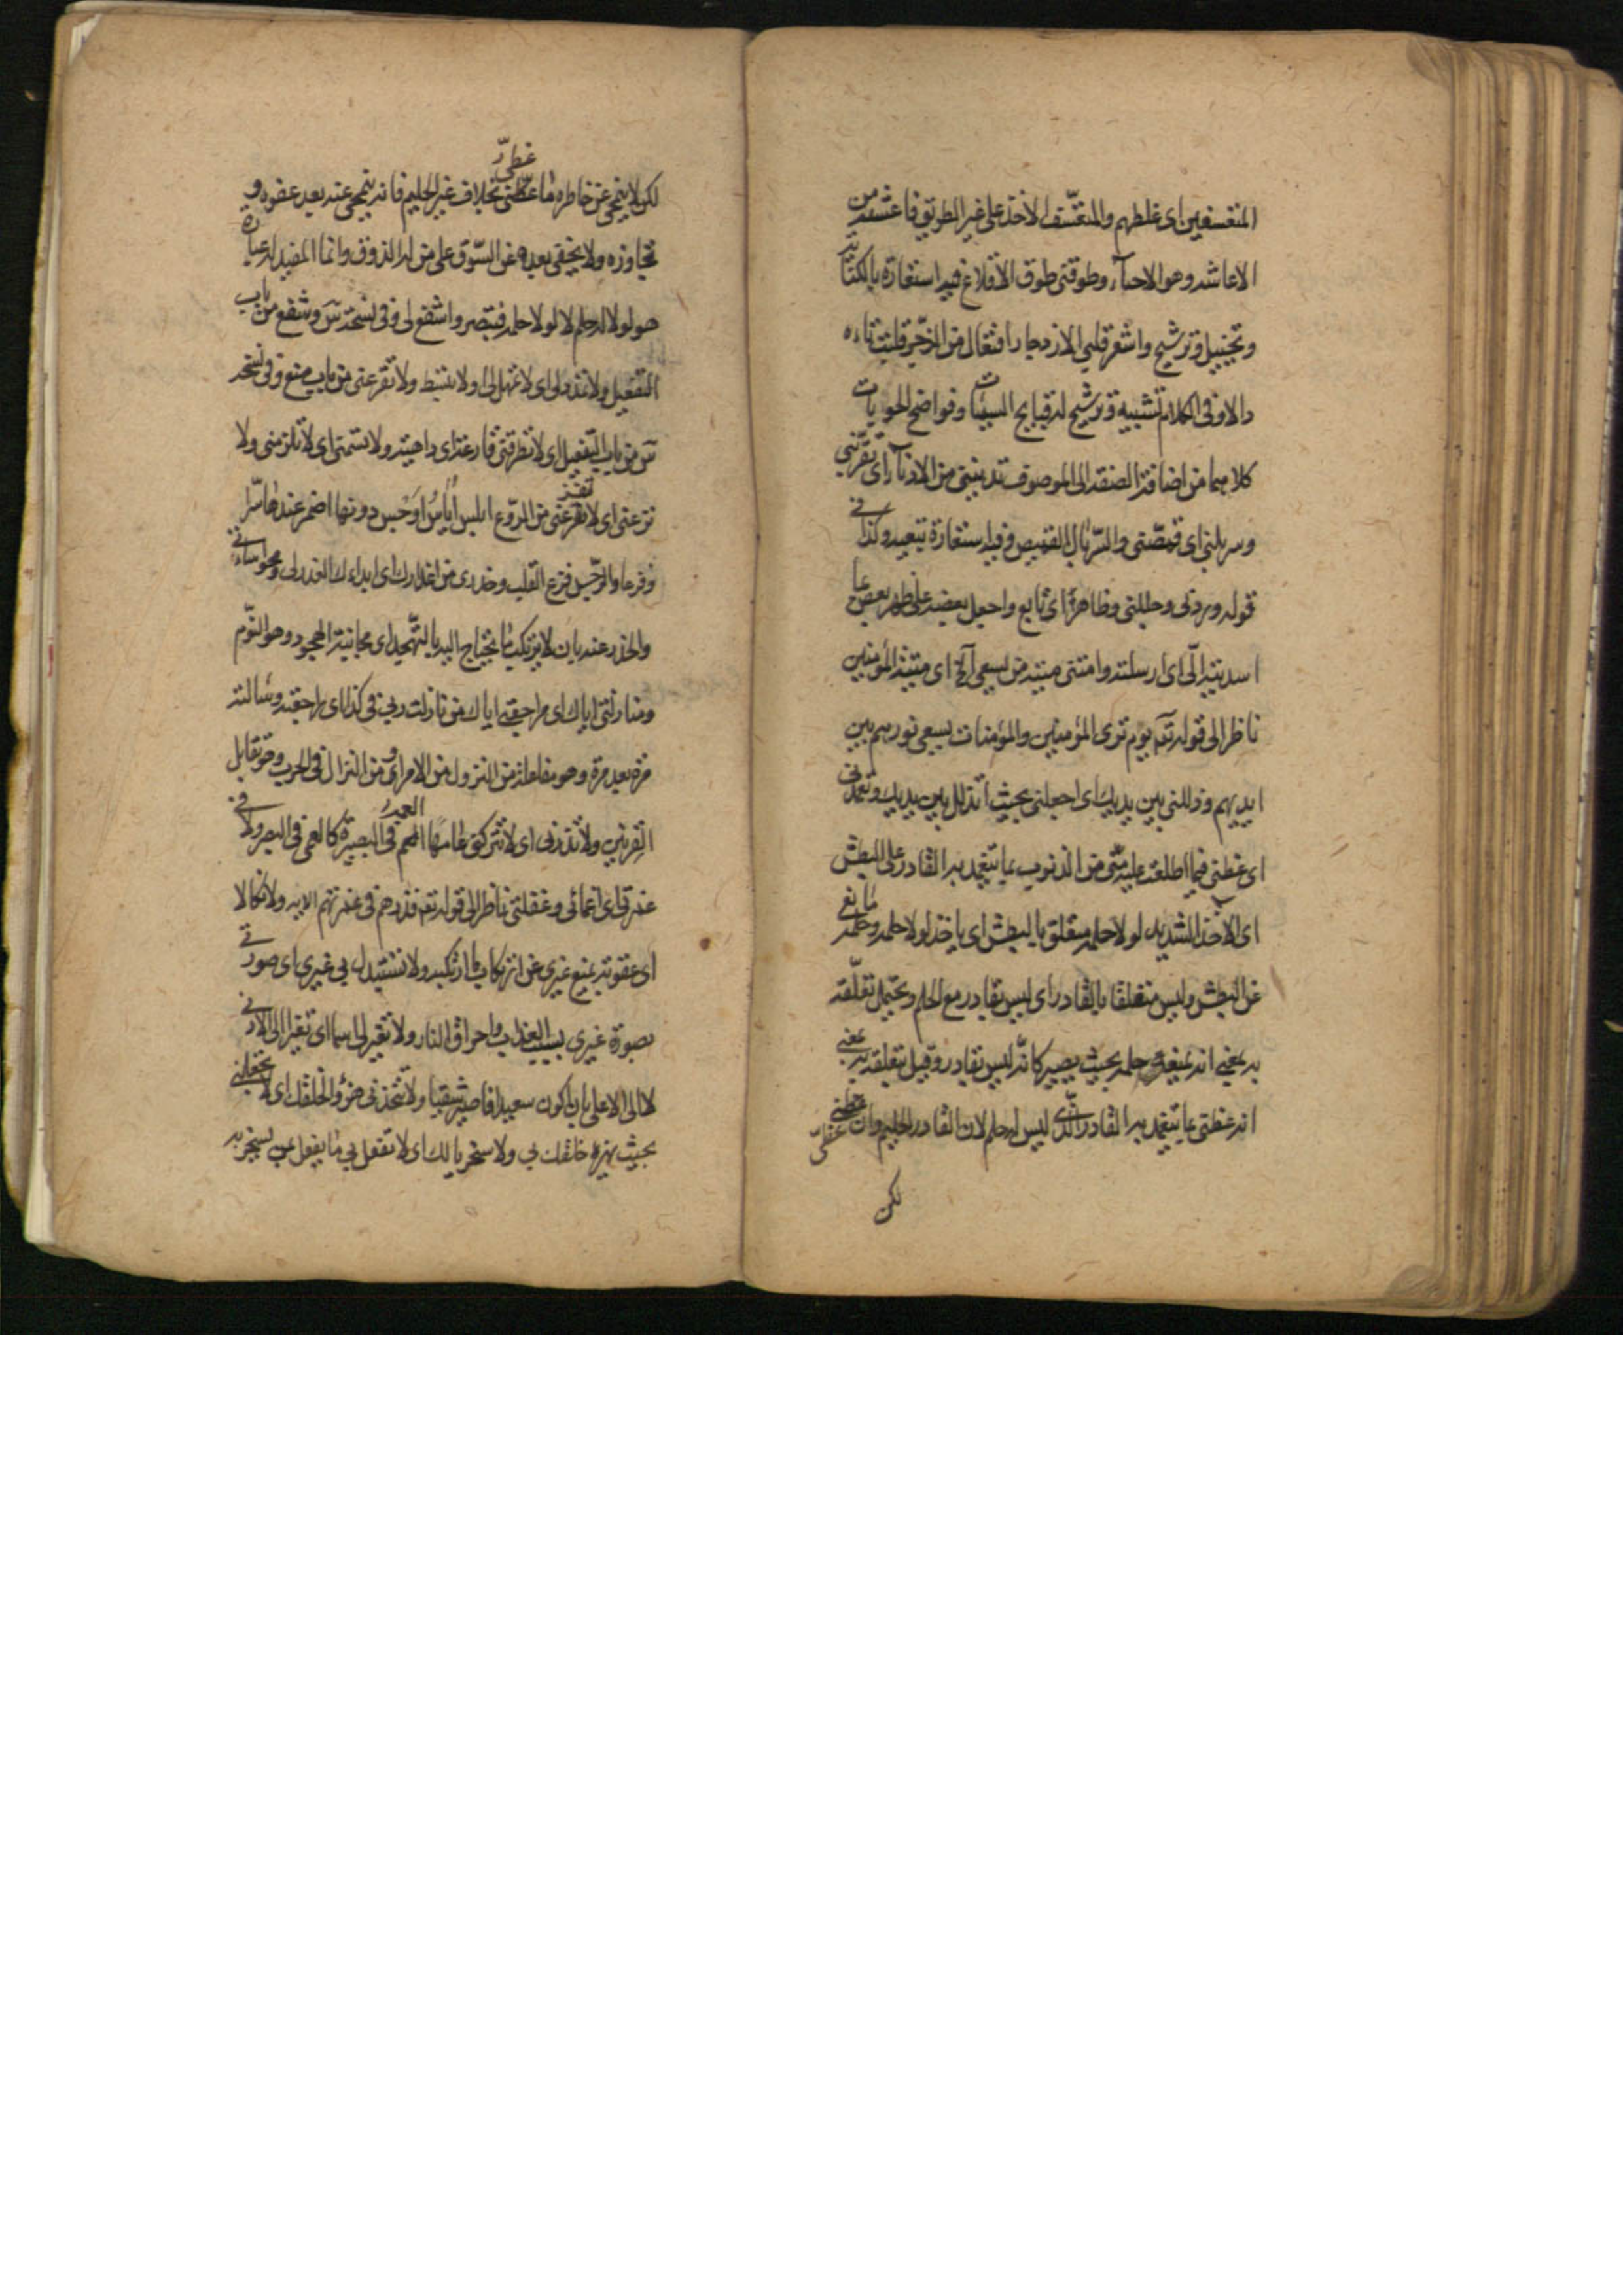 المتعسفين اى غلطهم والمتعسّف الاخذ على غير الطريق فانتعشه من
الاعاشه وهو الاحياء وطوقنى طوق الاقلاع فيه استعارة بالكناية
وتخييل وترشيح واشعر قلبى الازدجار افتعال من الزجر قلبت تاءه
دالا وفى الكلام تشبيه وترشيح له قبايح السيئات وفواضح الحوبات
كلاهما من اضافة الصفة الى الموصوف تدنينى من الادناء اى تقربنى
وسربلنى اى قمّصنى والسّربال القميص وفيه استعارة تبعيه وكذا فى
قوله وردنى وجللنى وظاهر اى تابع واجعل بعضه على ظهر بعض ما
اسديته الّى اى ارسلته وامتنى ميتة من يسعى آلخ اى ميتة المؤمنين
ناظر الى قوله تعم يوم ترى المؤمنين والمؤمنات يسعى نورهم بين
ايديهم وذللنى بين يديك اى اجعلنى بحيث اتذلل بين يديك وتغمدنى
اى غطنى فيما اطلعت عليه منّى من الذنوب بما يتغمد به القادر على البطش
اى الاخذ الشديد لولا حلمه متعلق بالبطش اى ياخذ لولا حلمه وحلمه مانع
عن البطش وليس متعلقا بالقادر اى ليس بقادر مع الحلم ويحتمل تعلّقه
به بمعنى انه يمنعه حلمه بحيث يصير كانّه ليس بقادر وقيل بتعلقه به بمعنى
انه غطنى بما يتغمد به القادر الّذى ليس له حلم لان القادر الحليم وان غطى
لكن
لكن لا ينمحى عن خاطره ما غطى بخلاف غير الحليم فانه ينمحى عنه بعد عفوه و
تجاوزه ولا يخفى بعده عن السّوق على من له الذوق وانما المفيد له عبارة
هو لولا له حلم لا لولا حلمه فتبصر واشفع لى وفى نسخة س وشفع من باب
التفعيل ولا تمدد لى اى لا تمهل لى ولا تقرعنى من باب منع وفى نسخه
س من باب التفعيل اى لا تطرقنى قارعة اى داهية ولا تسمنى اى لا تلزمنى ولا
ترعنى اى لا تفزعنى من الروع ابلس اياس اوجس دونها اضمر عندها سّرا
وفزعا والوجس فزع القلب وحذرى من اعذارك اى ابداءك العذر لى
والحذر عنه بان لا يرتكب ما يحتاج اليه بالتهجد اى مجانبة الهجود وهو النّوم
ومنازلتى اياك اى مراجعتى اياك من نازلت ربى فى كذا اى راجعته وسالته
مرة بعد مرة وهو مفاعلة من النزول من الامر او من النزال فى الحرب وهو تقابل
القرنين ولا تذرنى اى لا تتركنى عامها العمه فى البصيرة كالعمى فى البصر ولا فى
غمرتى اى اغمائى وغفلتى ناظر الى قوله تعم فذرهم فى غمرتهم الايه ولا نكالا
اى عقوبة يمنع غيرى عن ارتكاب ما ارتكبه ولا تستبدل بى غيرى اى صورتى
بصورة غيرى بسبب العذاب واحراق النار ولا تغير لى اسما اى تغيرا الى الادنى
لا الى الاعلى بان اكون سعيدا فاصير شقيا ولا تتخذنى هزؤا لخلقك اى لا تجعلنى
بحيث يهزء خلقك بى ولا سخريا لك اى لا تفعل بى ما يفعل من يسخر به